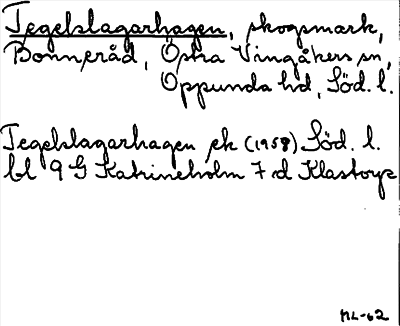 Tegelslagarhagen, skogsmark,
Bonneråd, Östra Vingåkers sn,
Oppunda hd, Söd. l.
Tegelslagarhagen ek (1958) Söd. l.
bl 9 G Katrineholm 7 d Klastorp
ML-62